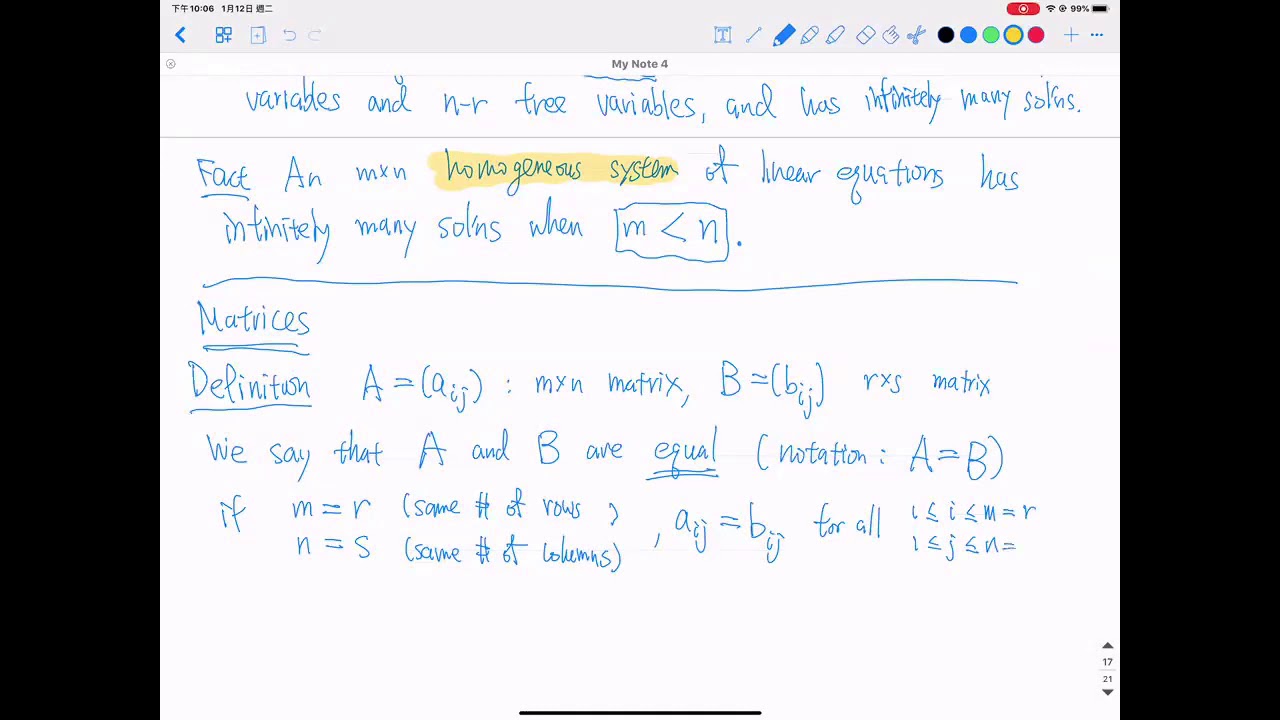 下午10:06 1月12日 週二
99%
My Note 4
variables and n-r free variables, and has infinitely many sol'ns.
Fact An m×n homogeneous system of linear equations has
infinitely many sol'ns when m < n.
Matrices
Definition A = (aij) : m×n matrix, B = (bij) r×s matrix
We say that A and B are equal (notation : A = B)
if m = r (same # of rows ) , aij = bij for all 1 ≤ i ≤ m = r
n = s (same # of columns) 1 ≤ j ≤ n =
17
21